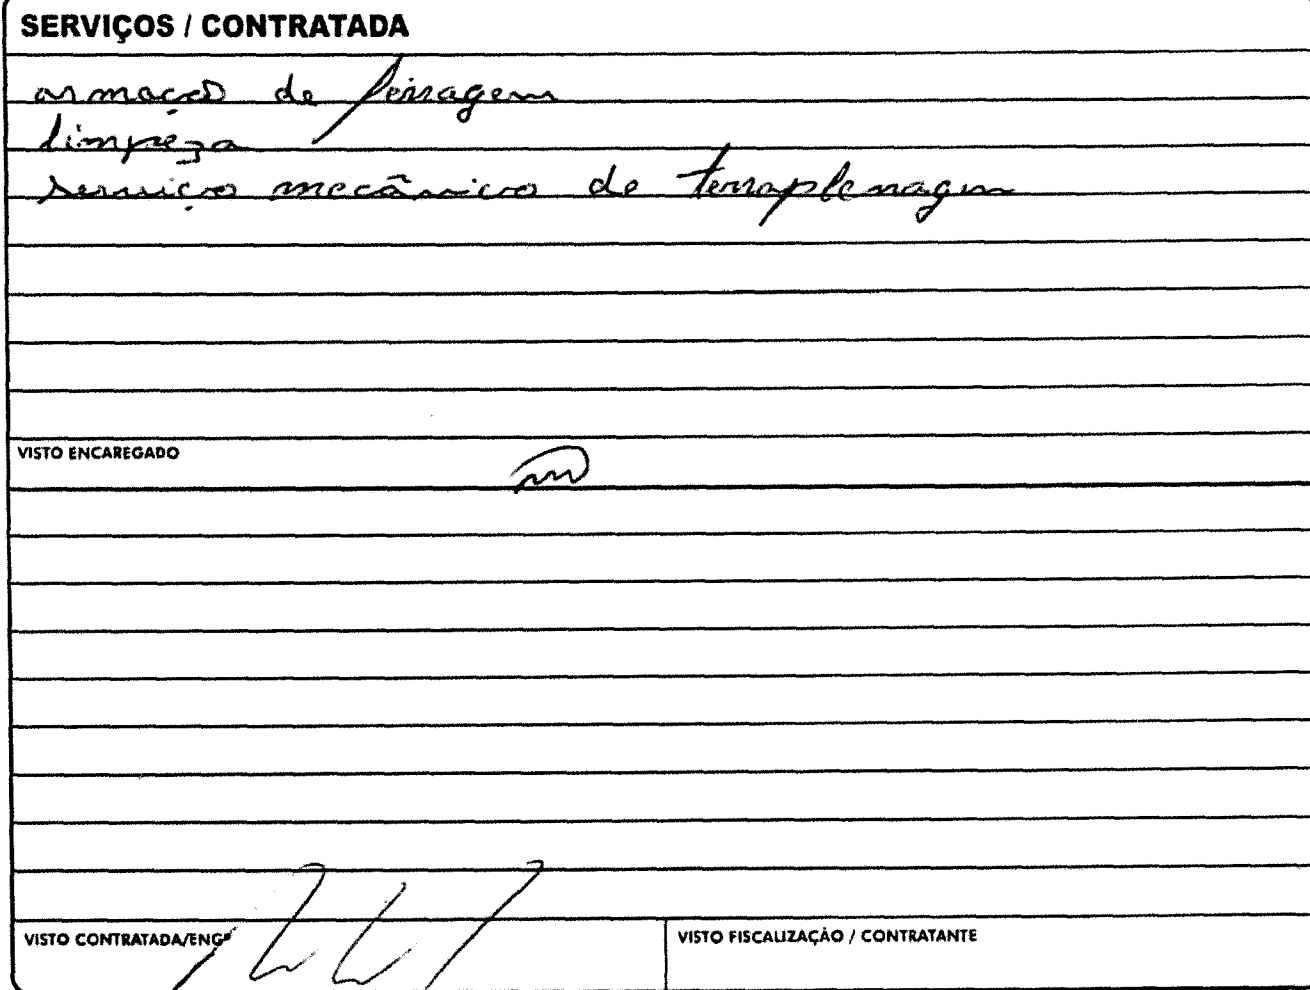 SERVIÇOS / CONTRATADA
armação de ferragem
limpeza
serviço mecânico de terraplenagem
VISTO ENCAREGADO
VISTO CONTRATADA/ENGº
VISTO FISCALIZAÇÃO / CONTRATANTE